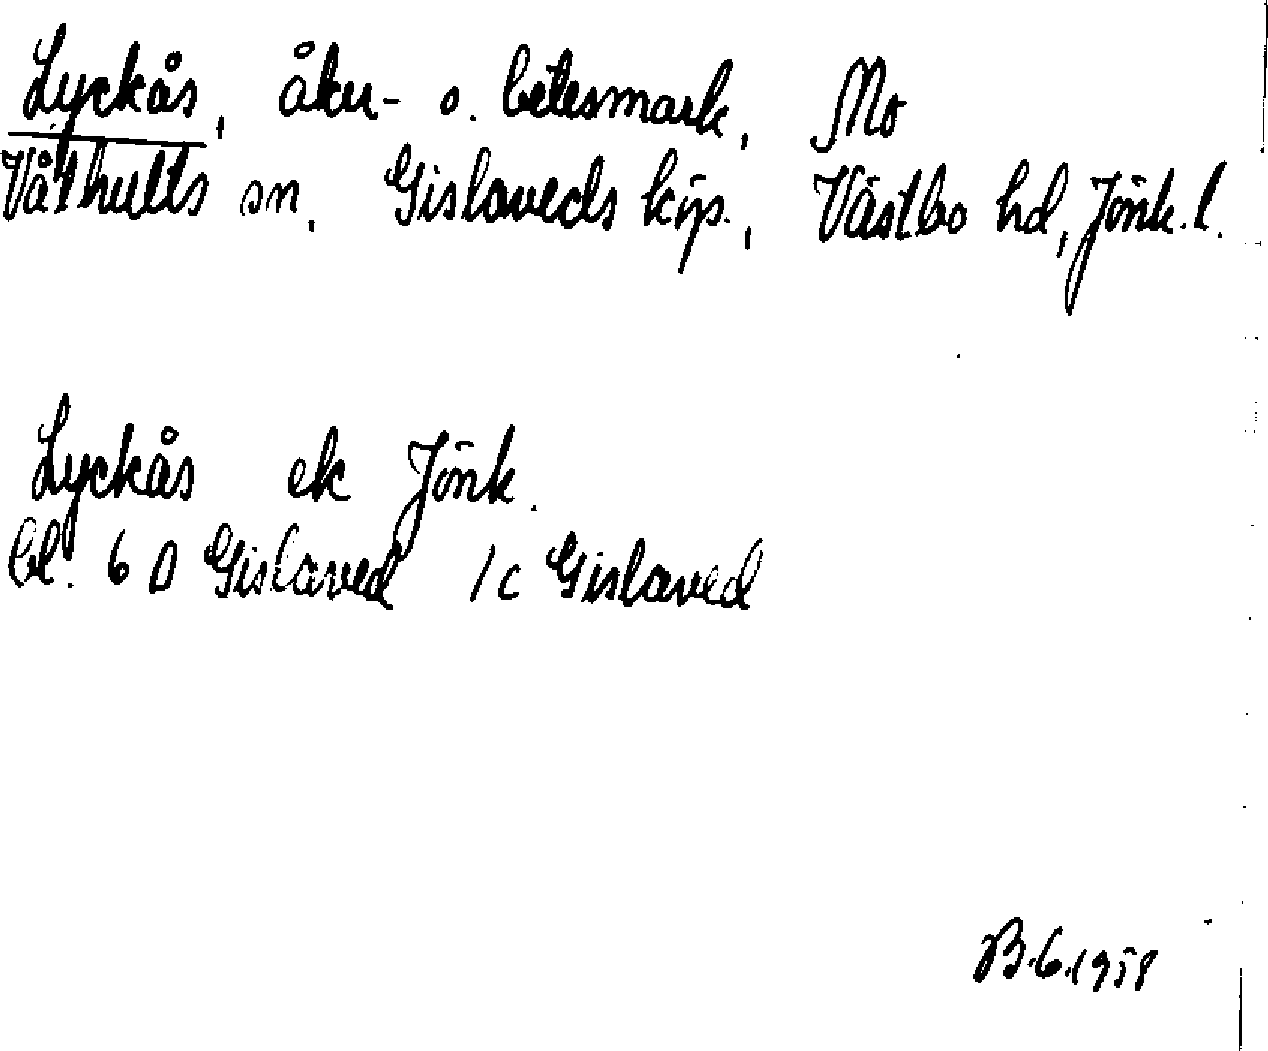 Lyckås, åker- o. betesmark, Mo
Våthults sn. Gislaveds köp., Västbo hd, Jönk. l.
Lyckås ek Jönk.
bl. 6 D Gislaved 1c Gislaved
B.G. 1958